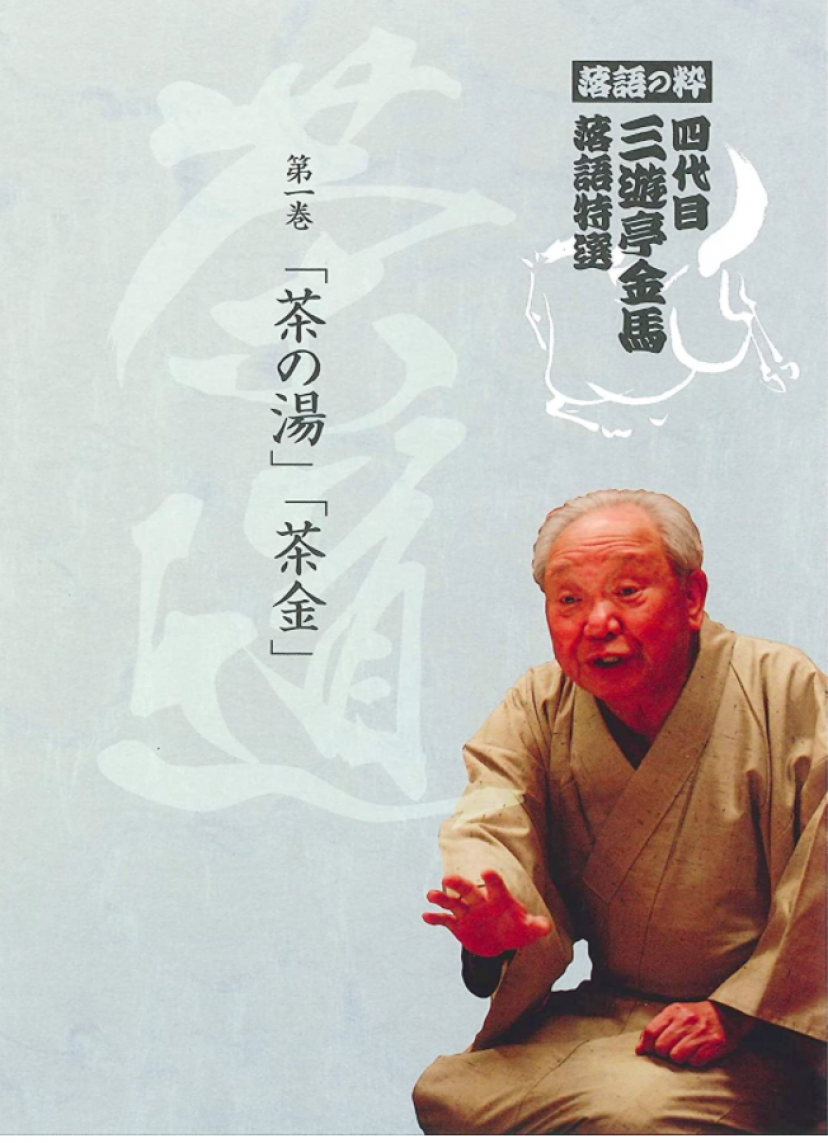 落語の粋
四代目
三遊亭金馬
落語特選
第一巻 「茶の湯」「茶金」
茶道